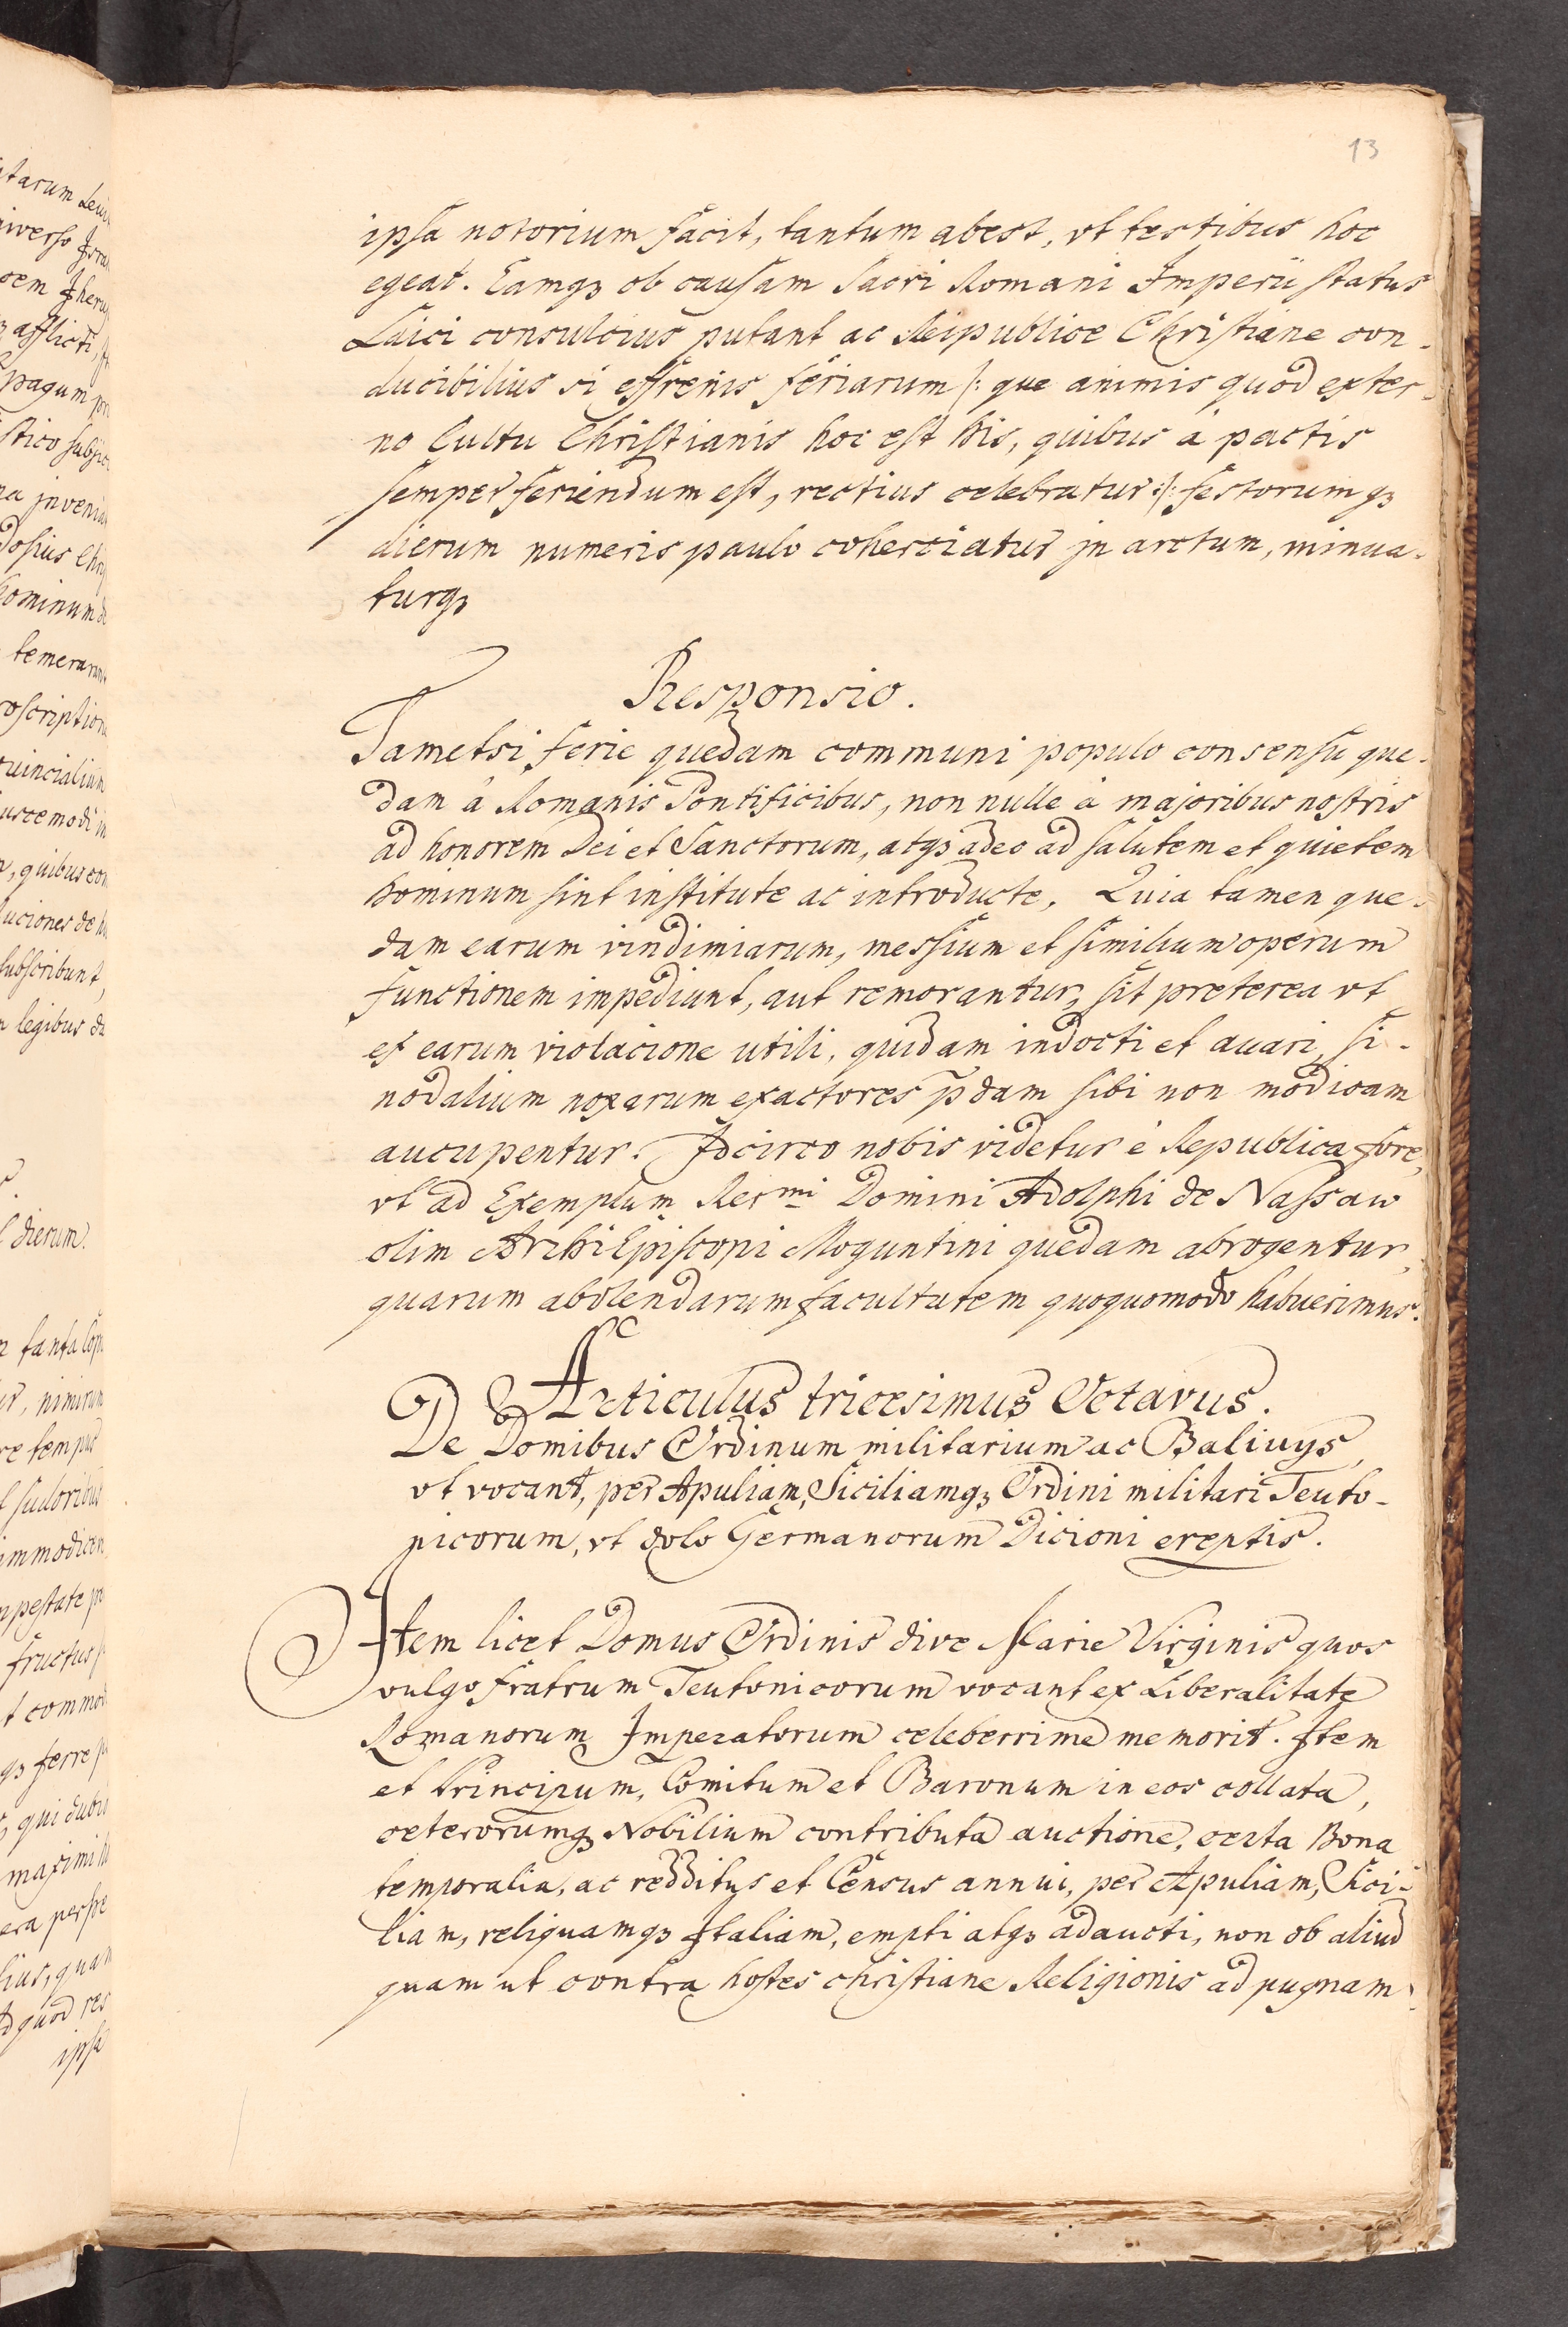 13
ipsa notorium facit, tantum abest, vt testibus hoc
egeat. Eamqꝫ ob causam Sacri Romani Imperii status
Laici consulcius putant ac Reipublice Christiane con-
ducibilius si effrenis feriarum /: que animis quod exter-
no Cultu Christianis hoc est his, quibus à pactis
semper feriendum est, rectius celebratur :/ festorumqꝫ
dierum numeris paulo coherciatur jn arctum, minua-
turqꝫ
Responsio.
Tametsi ferie quedam communi populo consensu que-
dam à Romanis Pontificibus, non nulle à majoribus nostris
ad honorem Dei et Sanctorum, atqꝫ adeo ad salutem et quietem
hominum sint institute ac introducte, Quia tamen que-
dam earum vindimiarum, messium et similium operum
functionem impediunt, aut remorantur, sit preterea vt
ex earum violacione utili, quidam indocti et auari, si-
nodalium noxarum exactores p̄dam sibi non modicam
aucupentur. Idcirco nobis videtur è Republica fore,
vt ad Exemplum Rer<sup>mi</sup> Domini Adolphi de Nassaw
olim ArchiEpiscopi Moguntini quedam abrogentur,
quarum abolendarum facultatem quoquomodo habuerimus.
Articulus tricesimus Octavus.
De Domibus Ordinum militarium ac Baliuys,
vt vocant, per Apuliam, Siciliamqꝫ Ordini militari Teuto-
nicorum, vt dolo Germanorum Dicioni ereptis.
Item licet Domus Ordinis dive Marie Virginis quos
vulgo fratrum Teutonicorum vocant ex Liberalitate
Romanorum Imperatorum celeberrime memorie. Item
et Principum, Comitum et Baronum in eos collata,
ceterorumqꝫ Nobilium contributa auctione, certa Bona
temporalia, ac redditus et Census annui, per Apuliam, Sici-
liam, reliquamqꝫ Italiam, empti atqꝫ adaucti, non ob aliud
quam ut contra hostes christiane Religionis ad pugnam